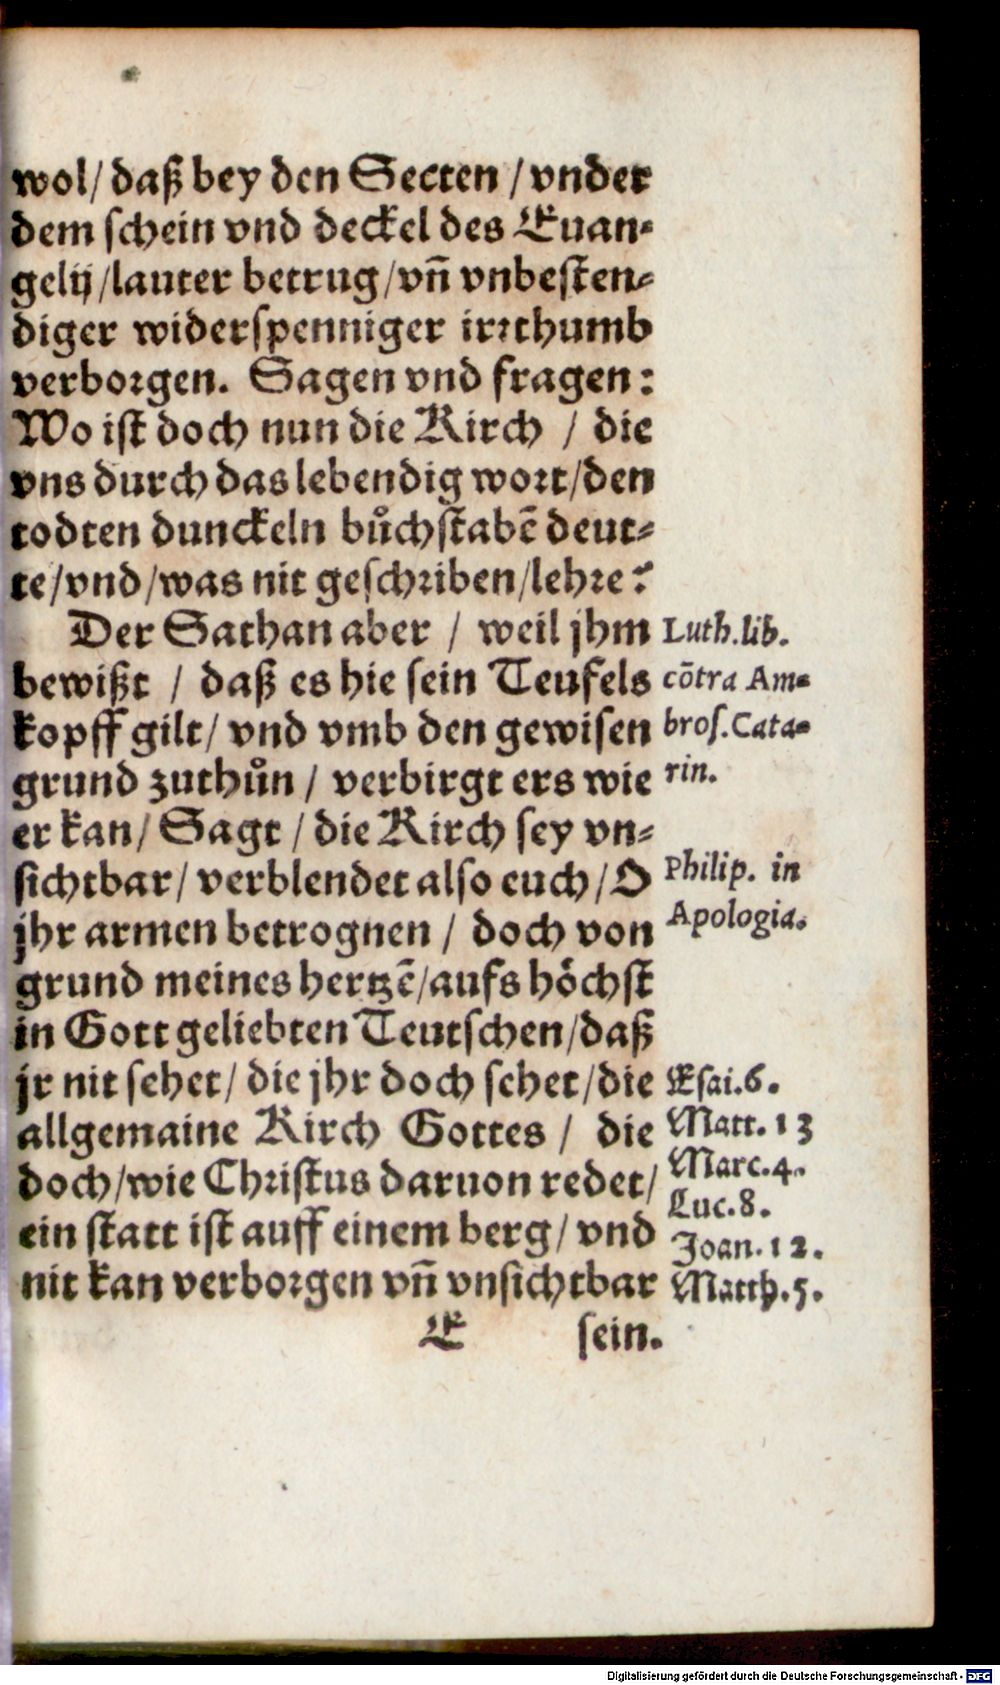 wol/ daß bey den Secten / vnder
dem schein vnd deckel des Euan-
gelij /lauter betrug/vñ vnbesten-
diger widerspenniger irrthumb
verborgen. Sagen vnd fragen:
Wo ist doch nun die Kirch / die
vns durch das lebendig wort/den
todten dunckeln bůchstabẽ deut-
te/vnd/was nit geschriben/lehre?
Der Sathan aber / weil jhm
bewißt / daß es hie sein Teufels
kopff gilt/ vnd vmb den gewisen
grund zuthůn / verbirgt ers wie
er kan/ Sagt / die Kirch sey vn-
sichtbar/ verblendet also euch/ O
jhr armen betrognen / doch von
grund meines hertzẽ/aufs hoͤchst
in Gott geliebten Teutschen/daß
jr nit sehet/ die jhr doch sehet/die
allgemaine Kirch Gottes / die
doch/wie Christus daruon redet/
ein statt ist auff einem berg/ vnd
nit kan verborgen vñ vnsichtbar
E sein.
Luth.lib.
cõtra Am-
bros.Cata-
rin.
Philip. in
Apologia.
Esai.6.
Matt. 13
Marc.4.
Luc.8.
Joan.12.
Matth.5.
Digitalisierung gefördert durch die Deutsche Forschungsgemeinschaft - DFG